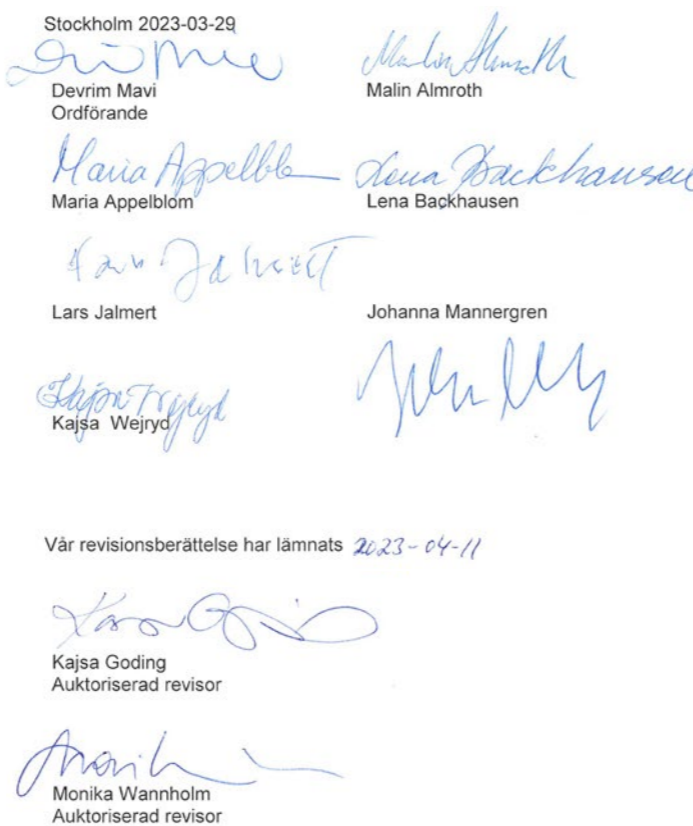 Stockholm 2023-03-29
Devrim Mavi
Ordförande
Malin Almroth
Malin Almroth
Maria Appelblom
Lena Backhausen
Maria Appelblom
Lena Backhausen
Lars Jalmert
Lars Jalmert
Johanna Mannergren
Kajsa Wejryd
Kajsa Wejryd
Vår revisionsberättelse har lämnats 2023-04-11
Kajsa Goding
Auktoriserad revisor
Monika Wannholm
Auktoriserad revisor